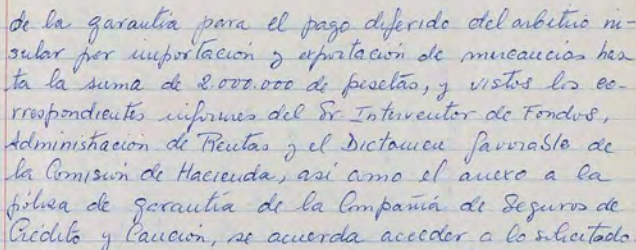 de la garantía para el pago diferido del arbitrio in-
sular por importación y exportación de mercancías has
ta la suma de 2.000.000 de pesetas, y vistos los co-
rrespondientes informes del Sr Interventor de Fondos,
Administración de Rentas y el Dictamen favorable de
la Comisión de Hacienda, así como el anexo a la
póliza de garantía de la Compañía de Seguros de
Crédito y Caución, se acuerda acceder a lo solicitado